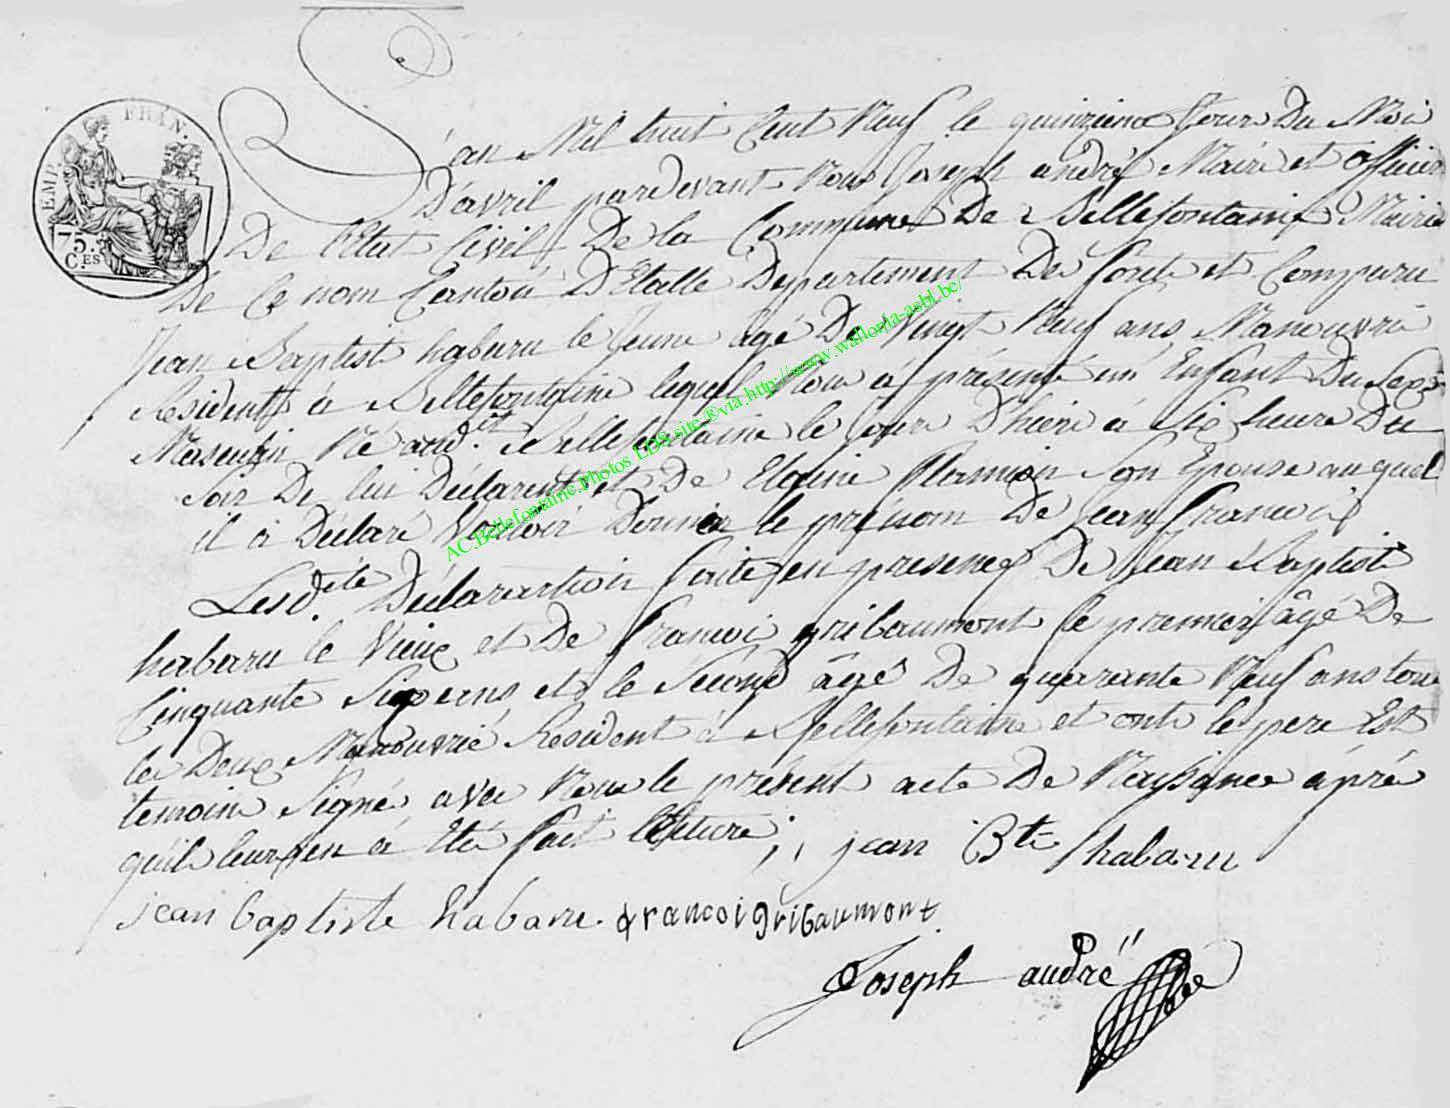 EMP. FRAN.
75.
C.ES
L'an Mil huit Cent Neuf le quinzieme Jour Du Moi
D'avril pardevant Nous Joseph andré Maire et officier
De l'Etat Civil De la Commune De Bellefontaine Mairie
De Ce nom Canton D'Etalle Departement De foret et Comparu
jean Baptist habaru le Jeune agé De Vingt Neuf ans, Manouvrié
Resident à Bellefontaine lequel Nou à présenté un Enfant Du Sexe
Masculin Né aud.it Bellefontaine le jour D'hiere à Six heure Du
Soir De lui Déclarent et De Elonie Son Epouse auquel
il à Déclaré Vouloir Donner le prenom De jean francoi
Lesd.ite Déclarartion faite en presence De Jean Baptist
habaru le Vieux et De francoi gribaumont le premier âgé De
Cinquante Six ans et le Second âgé De quarante Neuf ans tous
les Deux Manouvrié Resident à Bellefontaine et ont le pere Est
temoin Signé avec Nous le présent acte De Naissance àpré
quil leurs en à Eté fait lecture ;, jean Bte habaru
jean baptiste habaru. francoi gribaumont
Joseph andré
AC.Bellefontaine.Photos LDS.site.®via.http://www.wallonia-asbl.be/